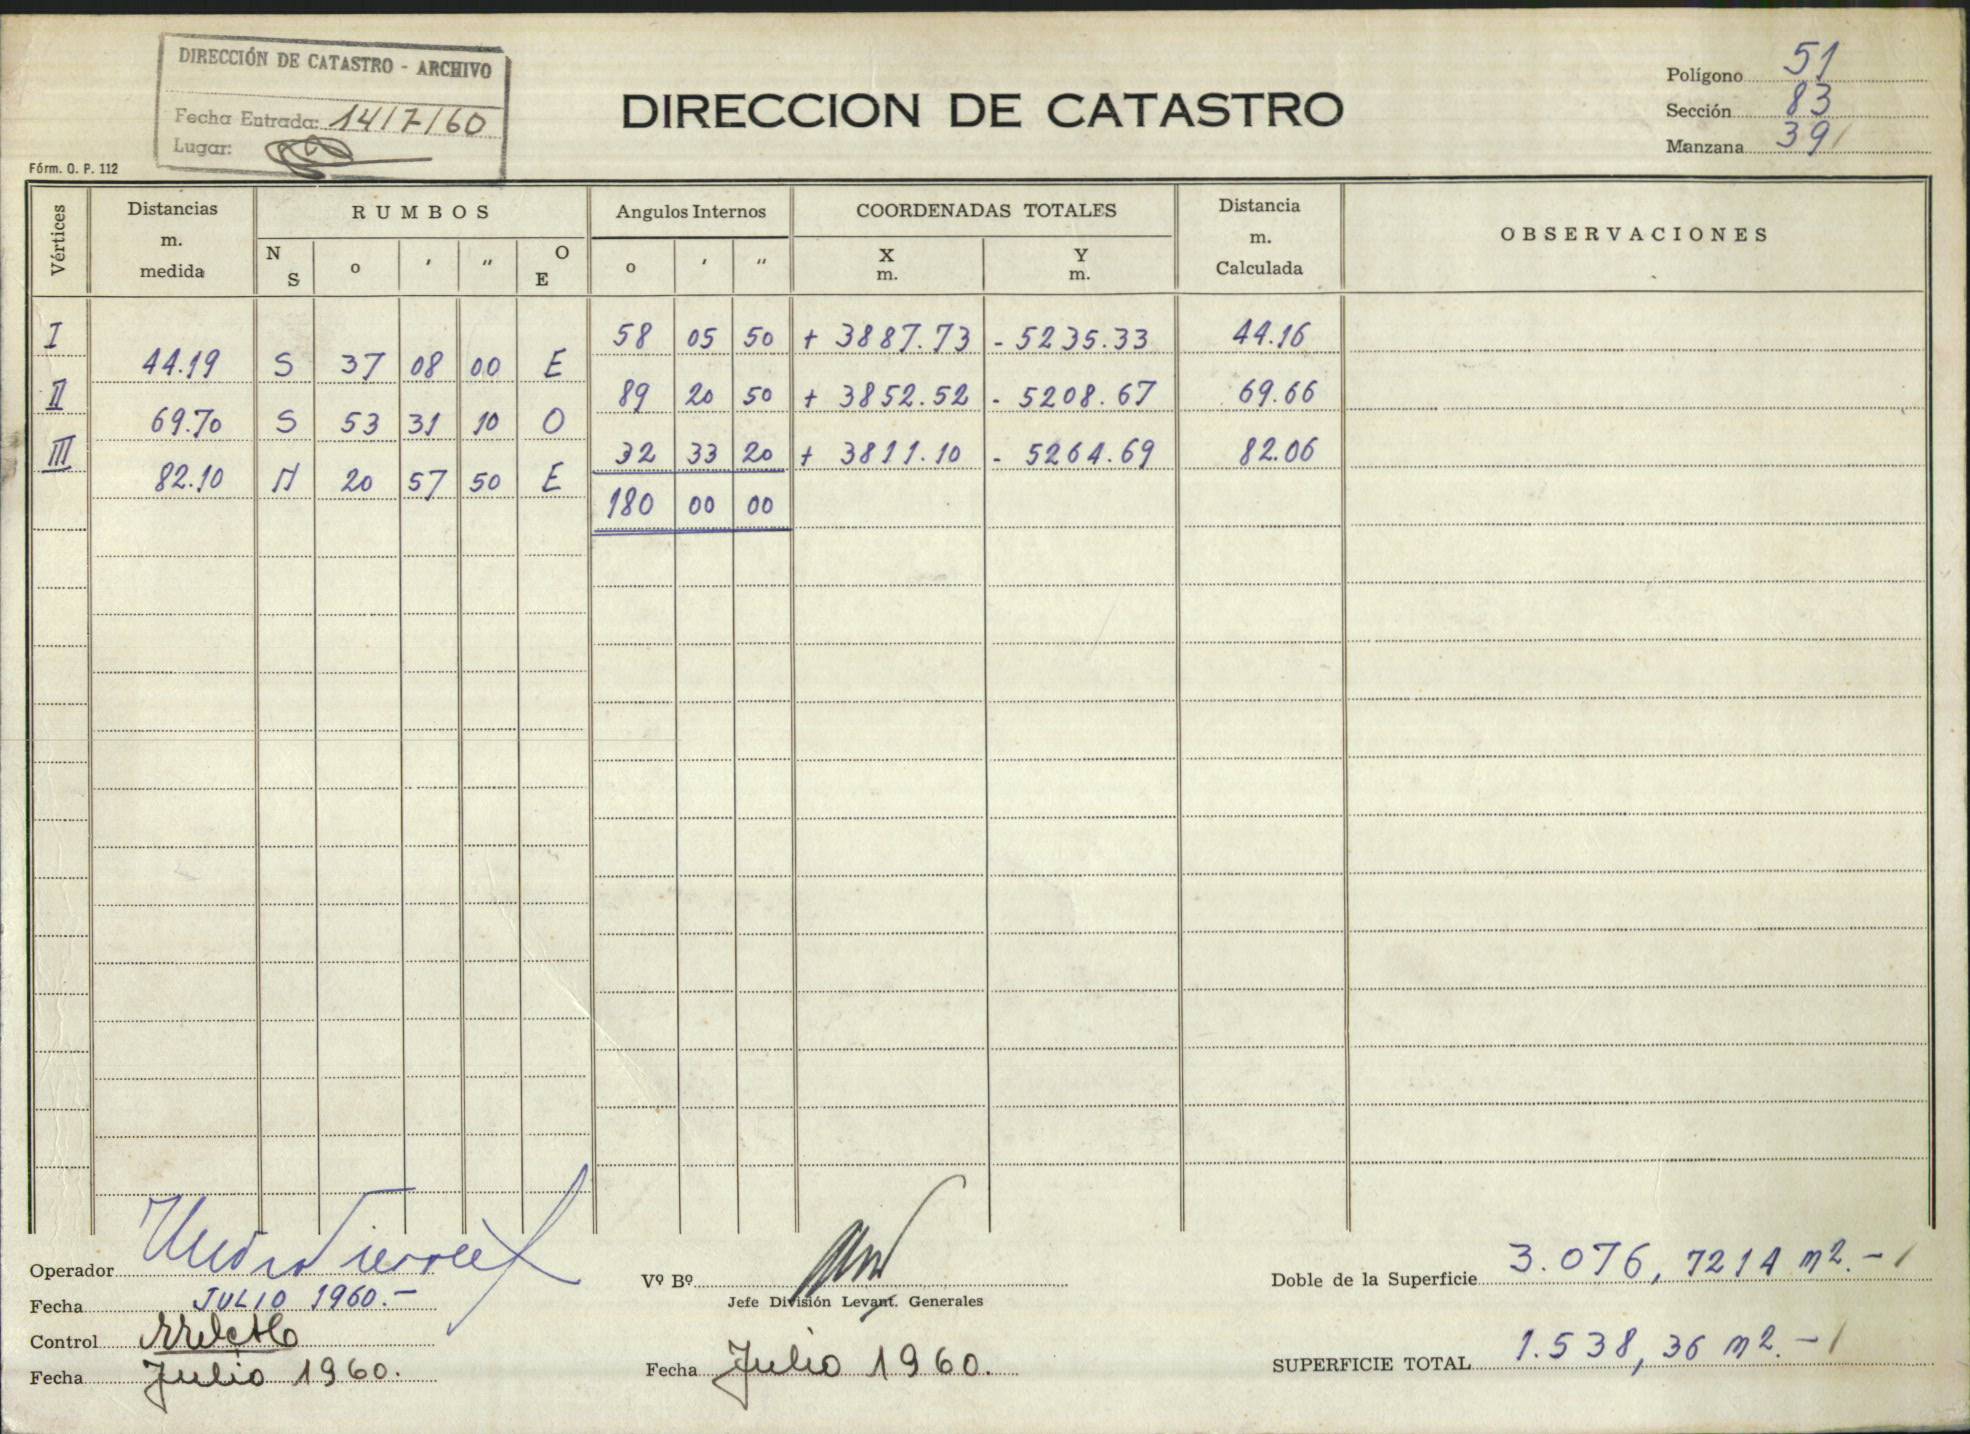 DIRECCIÓN DE CATASTRO - ARCHIVO
Fecha Entrada: 14/7/60
Lugar:
DIRECCION DE CATASTRO
Polígono 51
Sección 83
Manzana 39
Fórm. O. P. 112
Vértices Distancias m. medida RUMBOS N S o ' " O E Angulos Internos o ' " COORDENADAS TOTALES X m. Y m. Distancia m. Calculada OBSERVACIONES
I 58 05 50 + 3887.73 - 5235.33 44.16
44.19 S 37 08 00 E
II 89 20 50 + 3852.52 - 5208.67 69.66
69.70 S 53 31 10 O
III 32 33 20 + 3811.10 - 5264.69 82.06
82.10 N 20 57 50 E
180 00 00
Operador
Fecha JULIO 1960.-
Control
Fecha Julio 1960.
Vº Bº
Jefe División Levant. Generales
Fecha Julio 1960.
Doble de la Superficie 3.076,7214 m2.-
SUPERFICIE TOTAL 1.538,36 m2.-